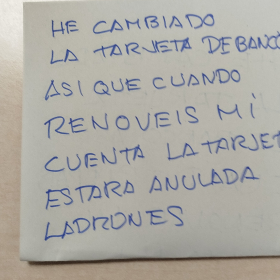 HE CAMBIADO
LA TARJETA DE BANCO
ASI QUE CUANDO
RENOVEIS MI
CUENTA LA TARJET
ESTARA ANULADA
LADRONES